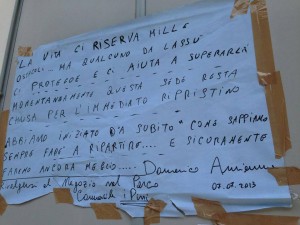 "LA VITA CI RISERVA MILLE
OSTACOLI.. MA QUALCUNO DA LASSU'
CI PROTEGGE E CI AIUTA A SUPERARLI
MOMENTANEAMENTE QUESTA SEDE RESTA
CHIUSA PER L'IMMEDIATO RIPRISTINO
ABBIAMO INIZIATO DA SUBITO "COME SAPPIAMO
SEMPRE FARE" A RIPARTIRE.... E SICURAMENTE
FAREMO ANCORA MEGLIO... Domenico
Rivolgersi al Negozio nel Parco
07.02.2013